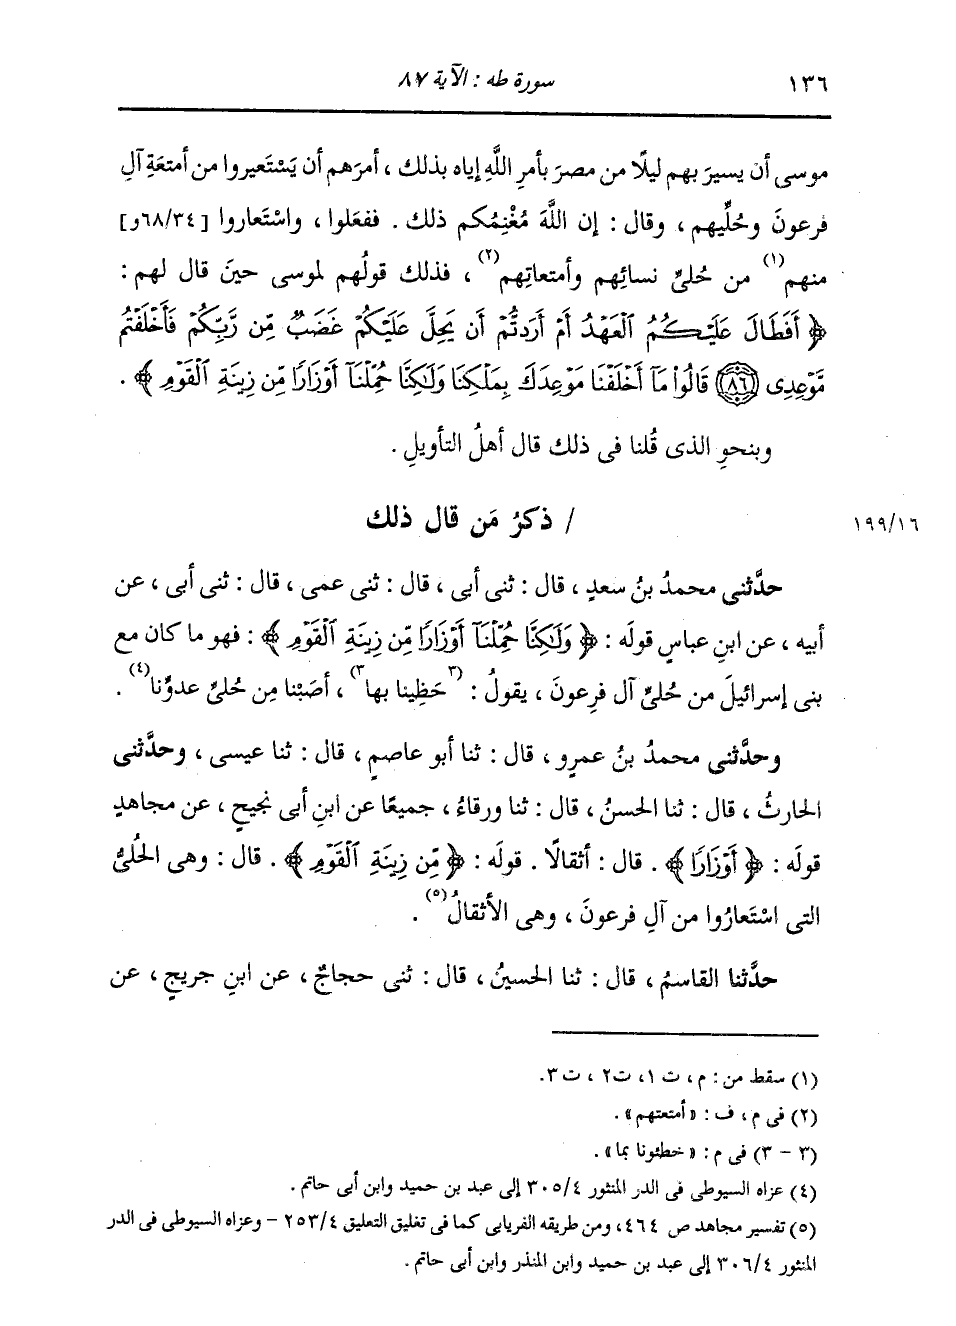 ١٣٦ سورة طه : الآية ٨٧
موسى أن يسيرَ بهم ليلًا من مصرَ بأمرِ اللَّهِ إياه بذلك ، أمرَهم أن يَسْتَعيروا من أمتعَةِ آلِ
فرعونَ وحُلِّيهم ، وقال : إن اللَّهَ مُغْنِمُكم ذلك . ففعَلوا ، واسْتَعاروا [٦٨/٣٤و]
منهم(١) من حُليِّ نسائِهم وأمتعاتِهم(٢) ، فذلك قولُهم لموسى حينَ قال لهم :
﴿ أَفَطَالَ عَلَيْكُمُ الْعَهْدُ أَمْ أَرَدتُّمْ أَن يَحِلَّ عَلَيْكُمْ غَضَبٌ مِّن رَّبِّكُمْ فَأَخْلَفْتُم
مَّوْعِدِى (٨٦) قَالُوا۟ مَآ أَخْلَفْنَا مَوْعِدَكَ بِمَلْكِنَا وَلَٰكِنَّا حُمِّلْنَآ أَوْزَارًا مِّن زِينَةِ الْقَوْمِ ﴾ .
وبنحوِ الذى قُلنا فى ذلك قال أهلُ التأويلِ .
/ ذكرُ مَن قال ذلك
١٩٩/١٦
حدَّثنى محمدُ بنُ سعدٍ ، قال : ثنى أبى ، قال : ثنى عمى ، قال : ثنى أبى ، عن
أبيه ، عن ابنِ عباسٍ قولَه : ﴿ وَلَٰكِنَّا حُمِّلْنَآ أَوْزَارًا مِّن زِينَةِ الْقَوْمِ ﴾ : فهو ما كان مع
بنى إسرائيلَ من حُليِّ آلِ فرعونَ ، يقولُ : (٣حَظِينا بها٣) ، أصَبْنا مِن حُليِّ عدوِّنا(٤) .
وحدَّثنى محمدُ بنُ عمرٍو ، قال : ثنا أبو عاصمٍ ، قال : ثنا عيسى ، وحدَّثنى
الحارثُ ، قال : ثنا الحسنُ ، قال : ثنا ورقاءُ ، جميعًا عن ابنِ أبى نجيحٍ ، عن مجاهدٍ
قولَه : ﴿ أَوْزَارًا ﴾ . قال : أثقالًا . قولَه : ﴿ مِّن زِينَةِ الْقَوْمِ ﴾ . قال : وهى الحُلىُّ
التى اسْتَعارُوا من آلِ فرعونَ ، وهى الأثقالُ(٥) .
حدَّثنا القاسمُ ، قال : ثنا الحسينُ ، قال : ثنى حجاجٌ ، عن ابنِ جريجٍ ، عن
(١) سقط من : م ، ت ١ ، ت ٢ ، ت ٣ .
(٢) فى م ، ف : « أمتعتهم » .
(٣ - ٣) فى م : « خطئونا بما » .
(٤) عزاه السيوطى فى الدر المنثور ٣٠٥/٤ إلى عبد بن حميد وابن أبى حاتم .
(٥) تفسير مجاهد ص ٤٦٤ ، ومن طريقه الفريابى كما فى تغليق التعليق ٢٥٣/٤ - وعزاه السيوطى فى الدر
المنثور ٣٠٦/٤ إلى عبد بن حميد وابن المنذر وابن أبى حاتم .